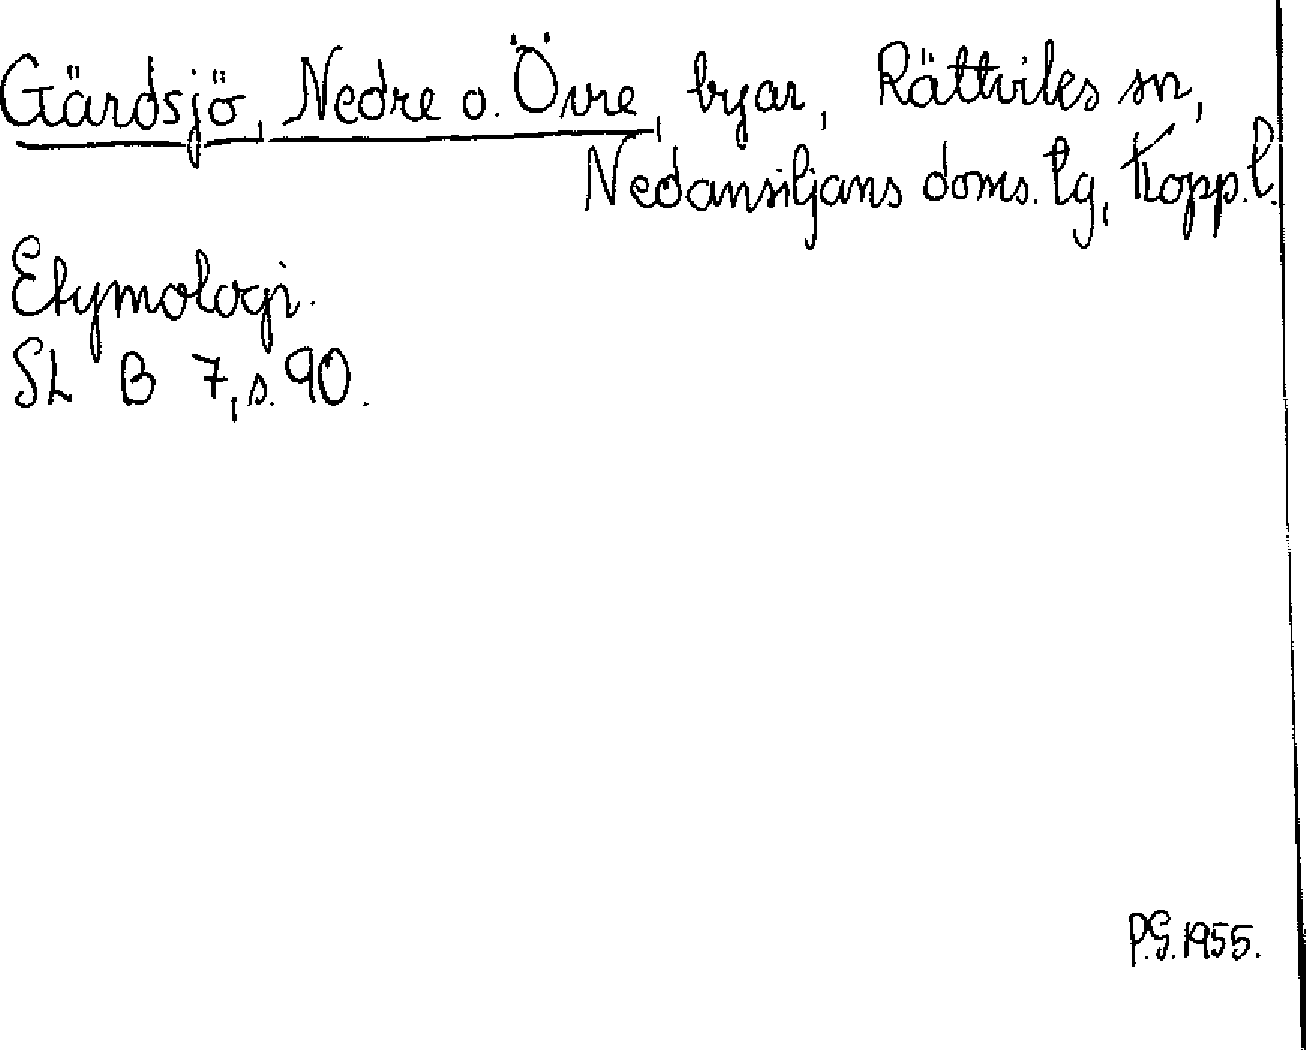 Gärdsjö, Nedre o. Övre, byar, Rättviks sn,
Nedansiljans doms. tg, Kopp.l.
Etymologi.
SL B 7, s. 90.
P.G. 1955.